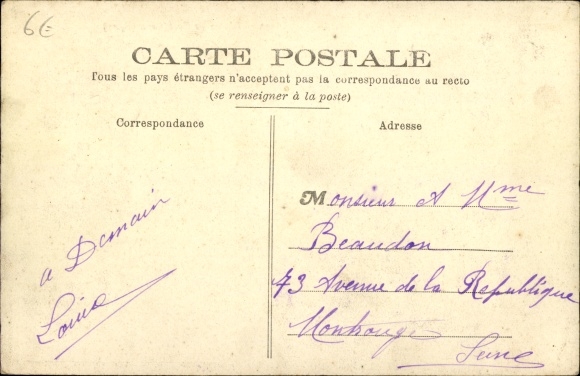 6€
CARTE POSTALE
Tous les pays étrangers n'acceptent pas la correspondance au recto
(se renseigner à la poste)
Correspondance
Adresse
a Demain
Monsieur A Mme
Beaudon
73 Avenue de la Republique
Montrouge
Seine